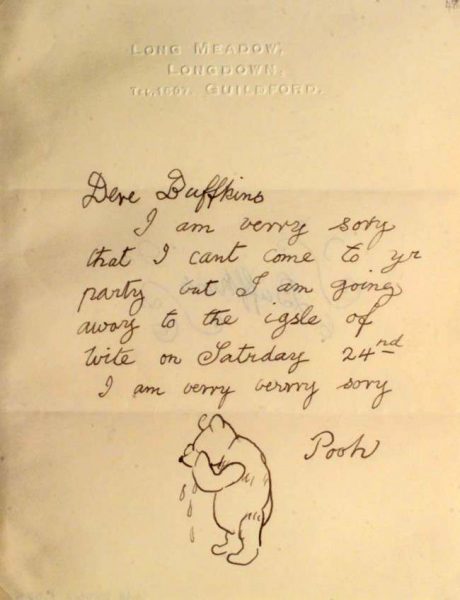 LONG MEADOW,
LONGDOWN,
TEL. 1607. GUILDFORD.
Dere Buffkins
I am verry sory
that I cant come to yr
party but I am going
away to the igsle of
Wite on Satrday 24nd
I am verry verrry sory
Pooh